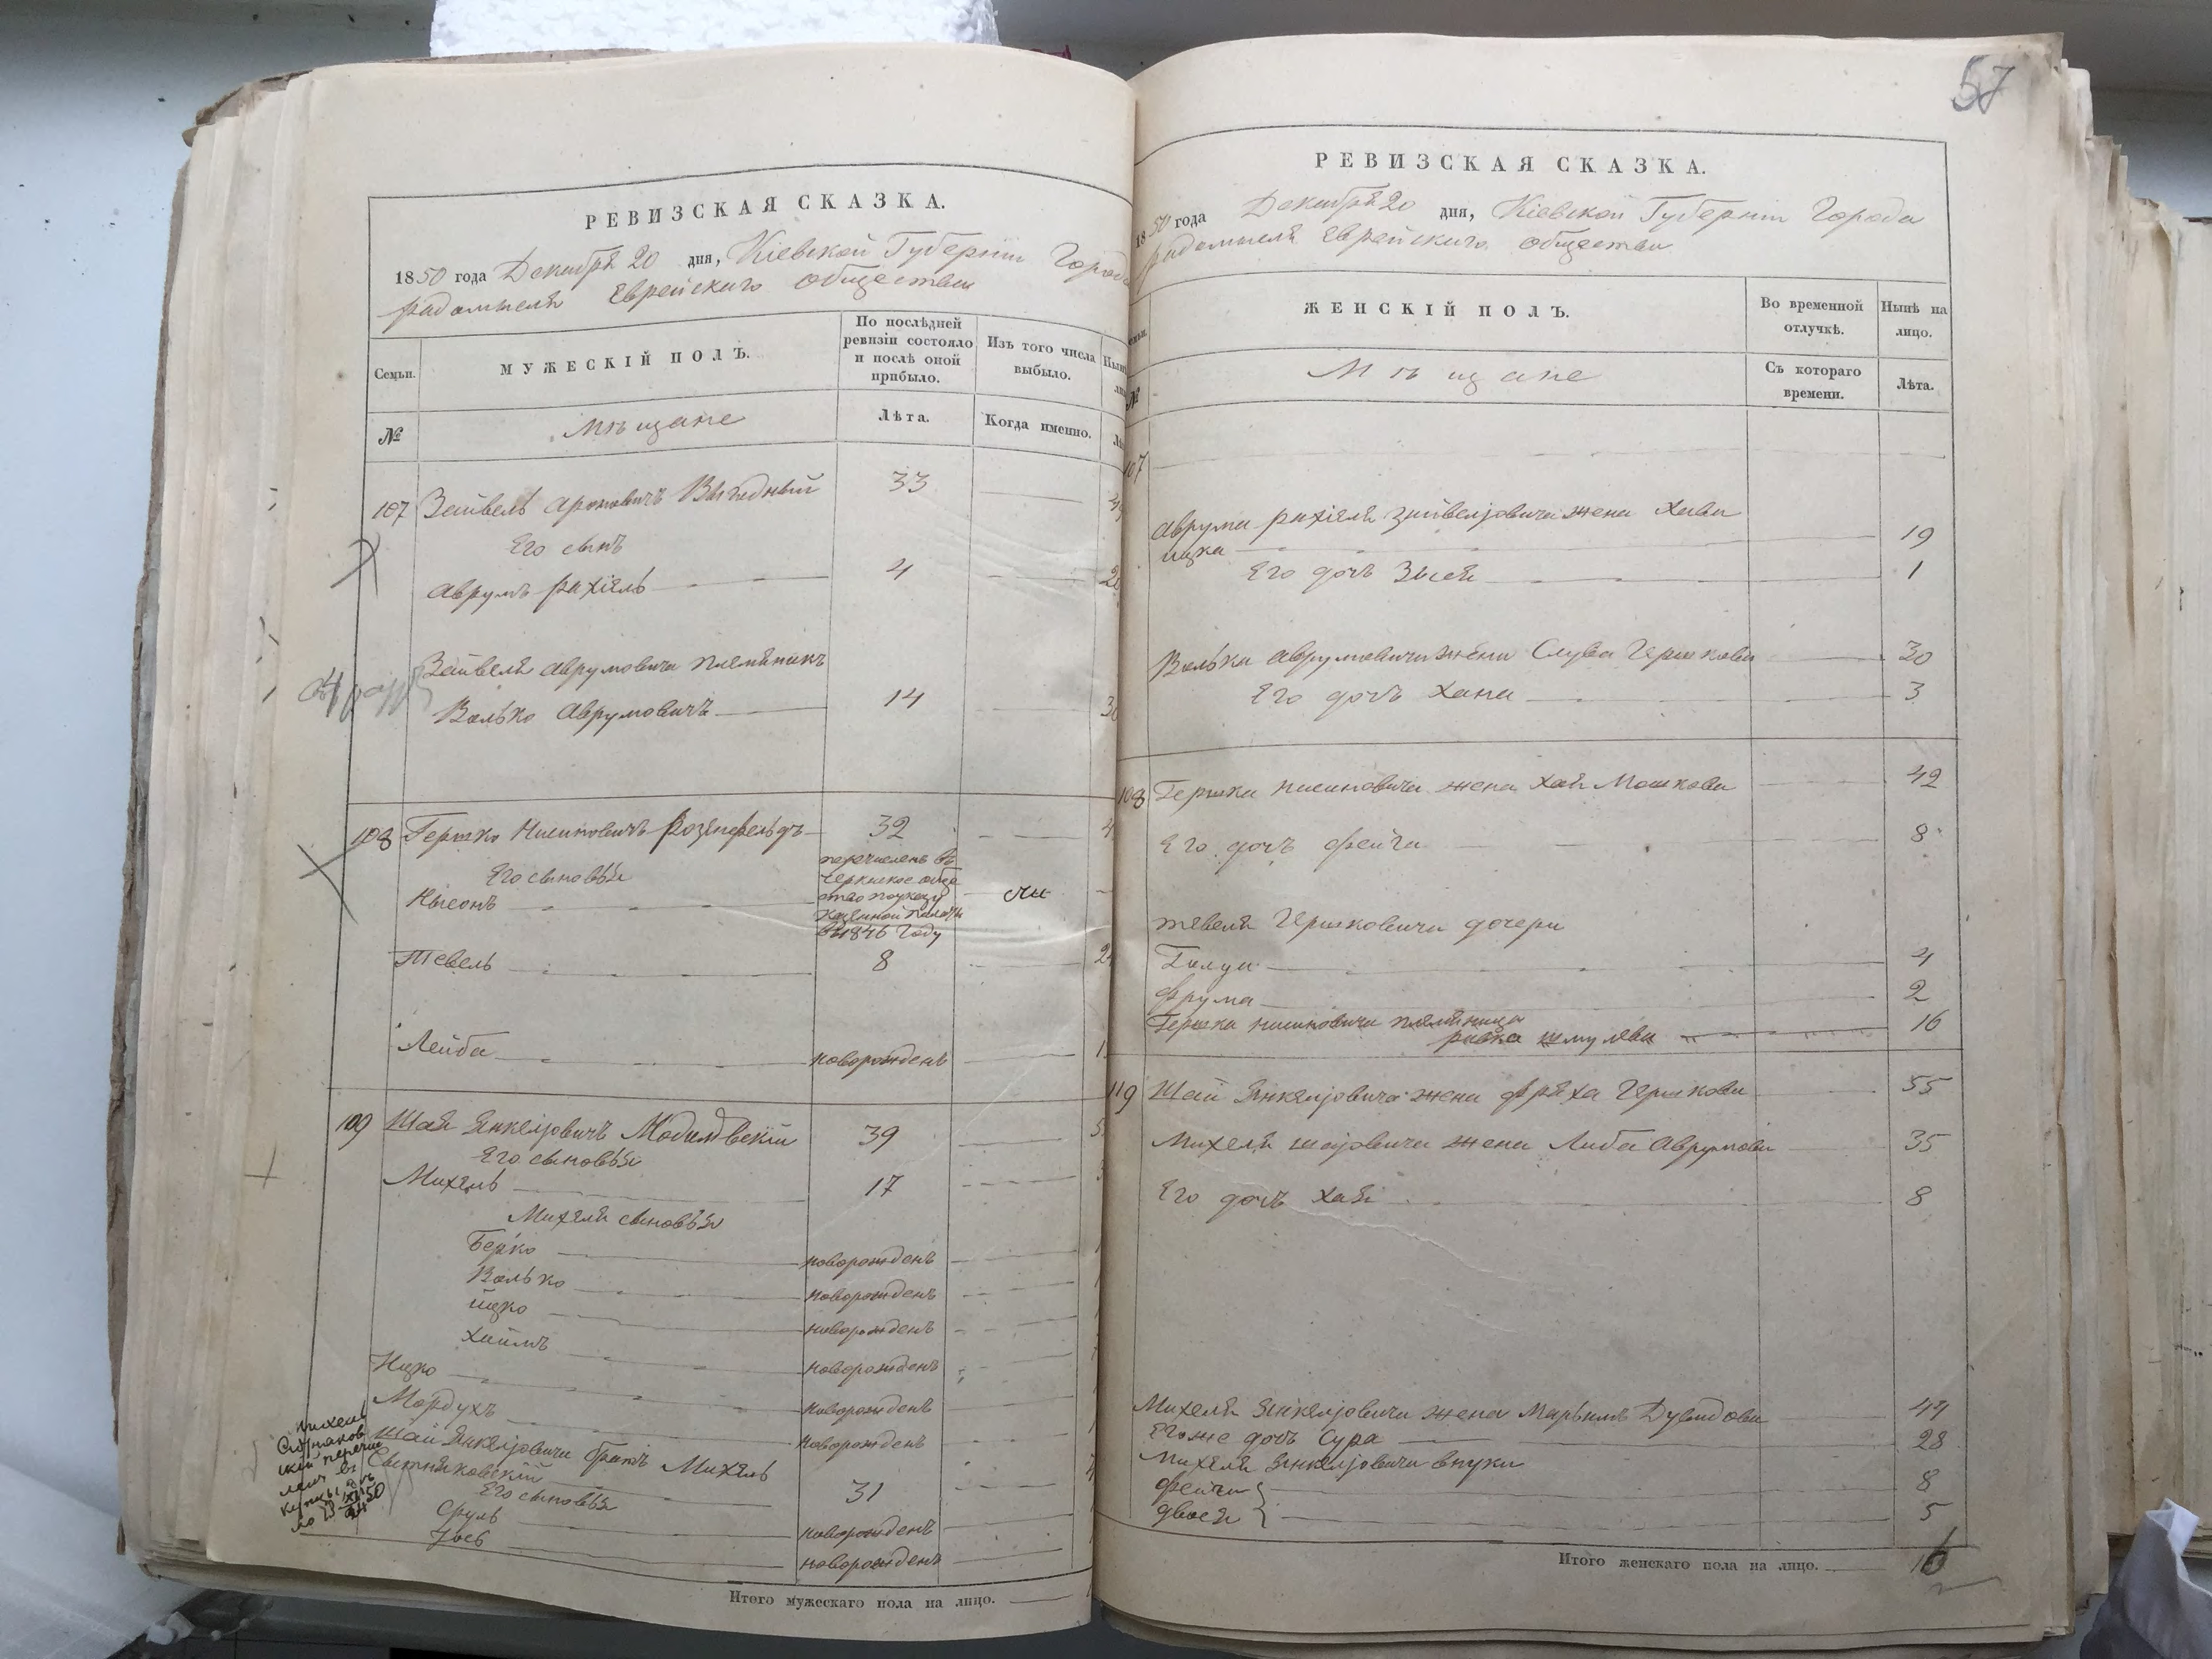 57
РЕВИЗСКАЯ СКАЗКА.
1850 года Декабря 20 дня, Кіевской Губерніи Города
Радомысля Еврейскаго общества
Семьи.
МУЖЕСКІЙ ПОЛЪ.
По послѣдней
ревизіи состояло
и послѣ оной
прибыло.
Изъ того числа
выбыло.
№
Мѣщане
Лѣта.
Когда именно.
107 Зейвель Ароновичъ Выгодный 33
Его сынъ
Аврумъ Рахіель 4
Зейвеля Аврумовича племянникъ
Волько Аврумовичъ 14
108 Гершко Нисиновичъ Розенфельдъ 32
Его сыновья
Нысонъ
перечисленъ въ
обще
ство по указу
Казенной Палаты
въ 1846 году
Тевель 8
Лейба новорожденъ
109 Шая Янкелiовичъ 39
Его сыновья
Михель 17
Михеля сыновья
Берко новорожденъ
Волько новорожденъ
Ицко новорожденъ
Хаимъ новорожденъ
Ицко новорожденъ
Мордухъ новорожденъ
Шаи Янкелiовича братъ Михель
Ситняковскій 31
Его сыновья
Сруль новорожденъ
Iось новорожденъ
Итого мужескаго пола на лицо.
РЕВИЗСКАЯ СКАЗКА.
1850 года Декабря 20 дня, Кіевской Губерніи Города
Радомысля Еврейскаго общества
№
ЖЕНСКІЙ ПОЛЪ.
Во временной
отлучкѣ.
Нынѣ на
лицо.
Мѣщане
Съ котораго
времени.
Лѣта.
107
Аврума Рахіеля Зейвелiовича жена Хава
Ицка 19
Его дочь Зыся 1
Волька Аврумовича жена Слува Гершкова 30
Его дочь Хана 3
108 Гершка Нисиновича жена Хая Мошкова 42
Его дочь Фейга 8
Тевеля Гершковича дочери
Голда 4
Фрума 2
Гершка Нисиновича племянница
Ривка Шмулева 16
119 Шаи Янкелiовича жена Фряха Гершкова 55
Михеля Шаiовича жена Либа Аврумова 35
Его дочь Хая 8
Михеля Янкелiовича жена Марьямъ Дувидова 47
Его же дочь Сура 28
Михеля Янкелiовича внуки
Фейга 8
Двося 5
Итого женскаго пола на лицо. 16